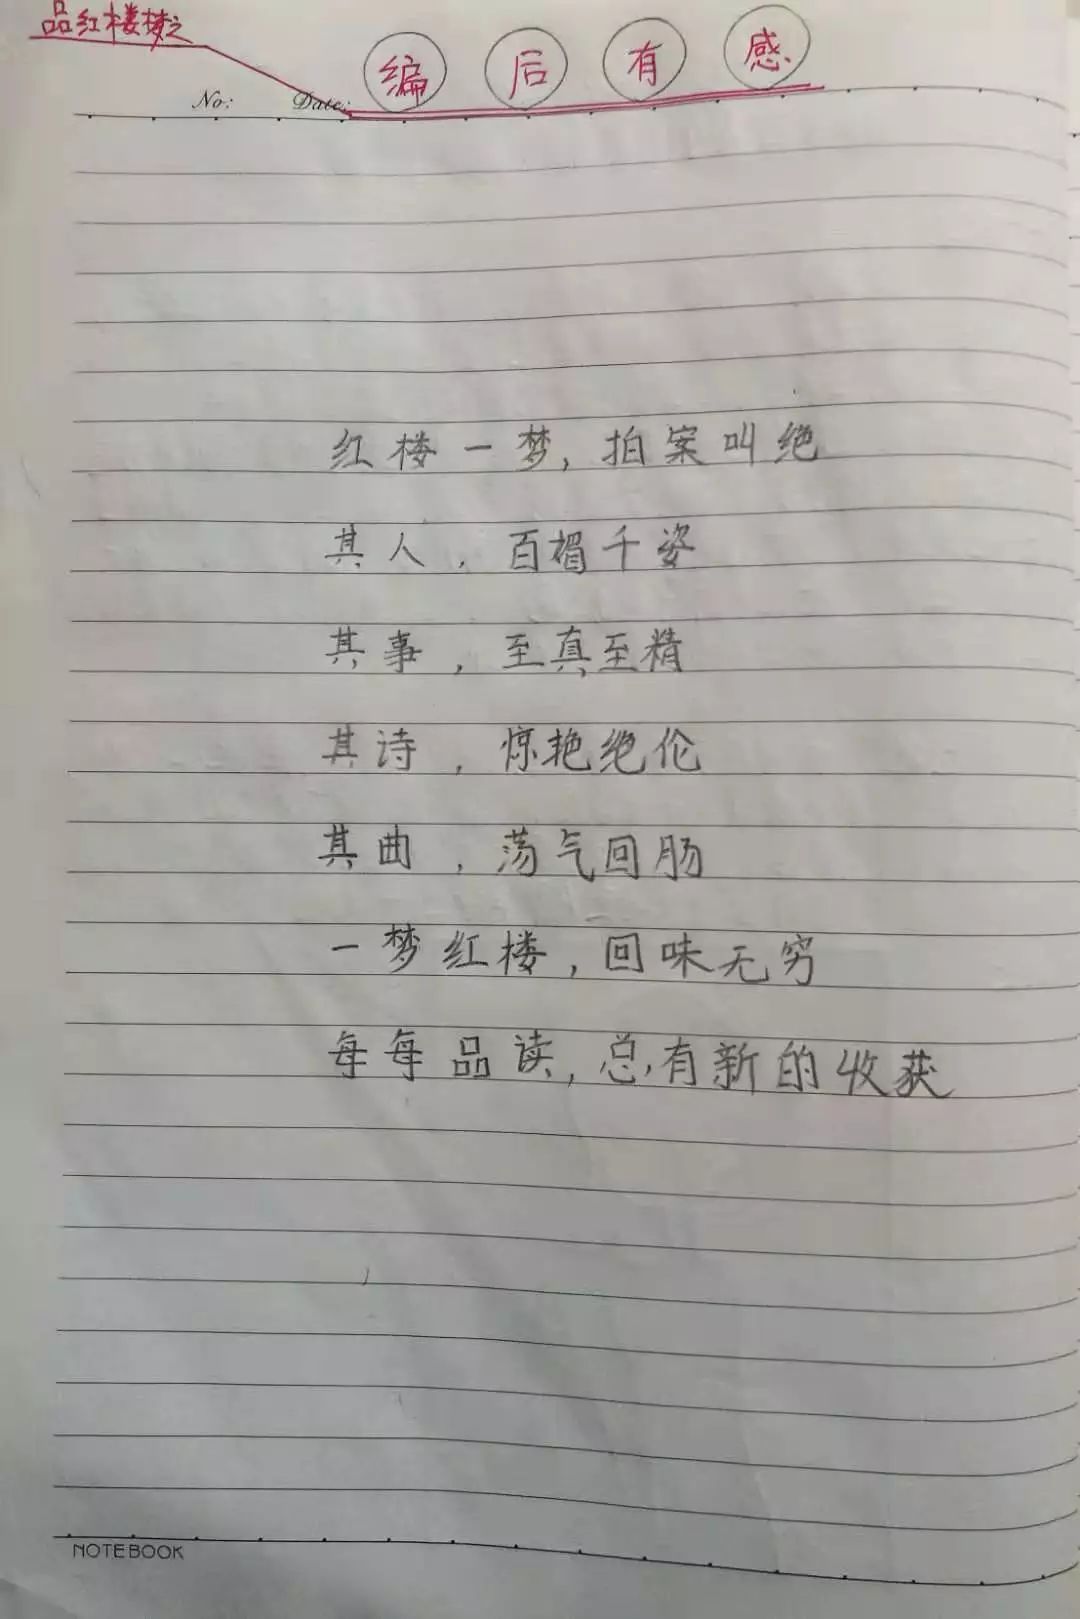 品红楼梦之
编后有感
No: Date:
红楼一梦,拍案叫绝
其人,百楣千姿
其事,至真至精
其诗,惊艳绝伦
其曲,荡气回肠
一梦红楼,回味无穷
每每品读,总有新的收获
NOTEBOOK